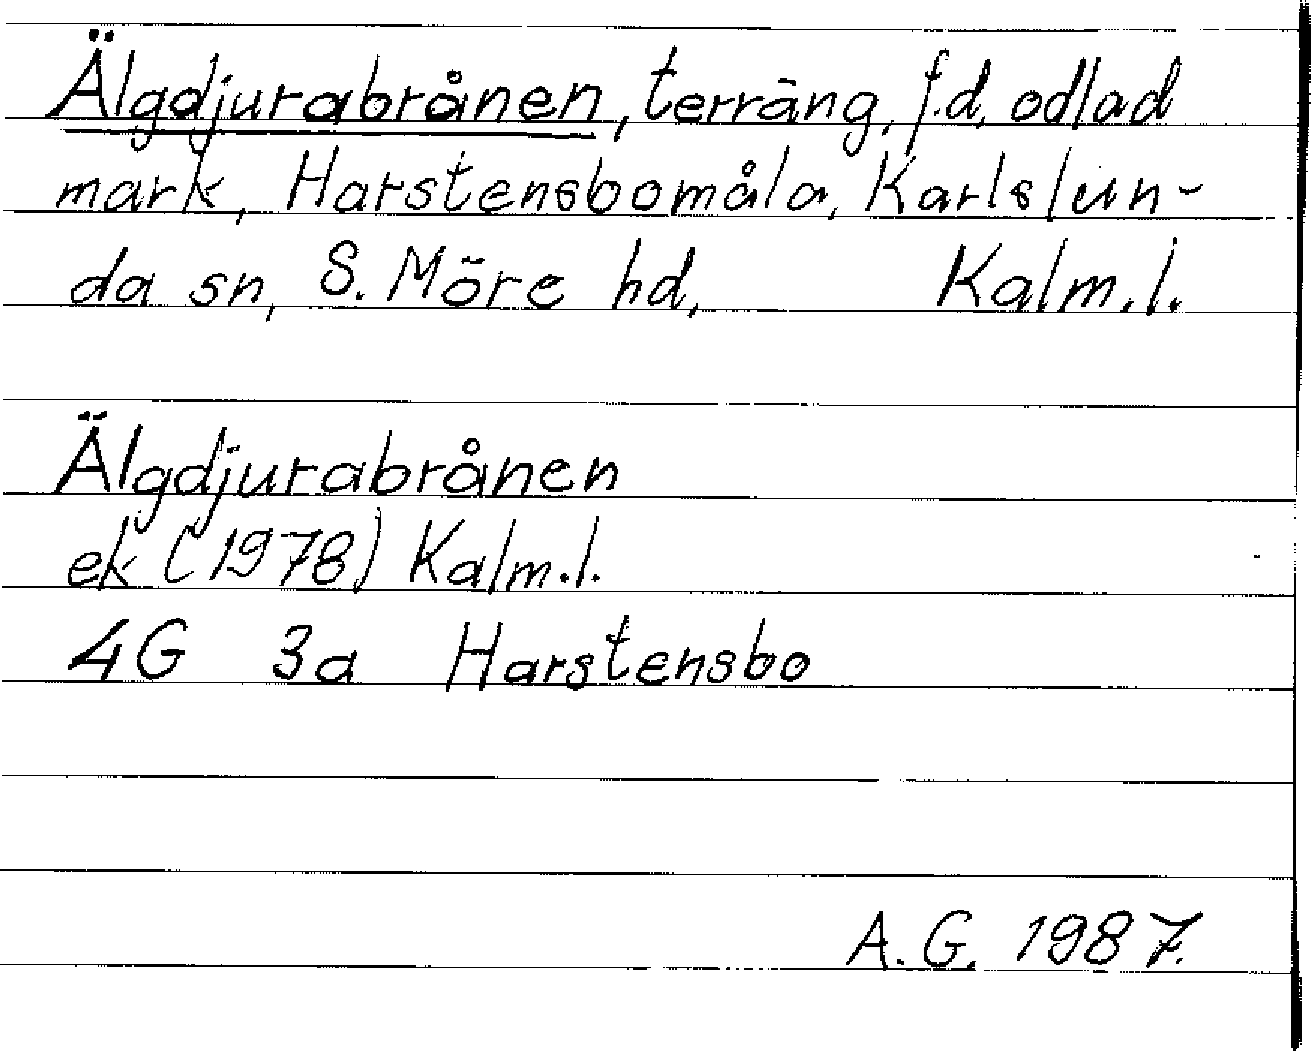 Älgdjurabrånen, terräng, f.d. odlad
mark, Harstensbomåla, Karlslun-
da sn, S. Möre hd, Kalm.l.
Älgdjurabrånen
ek (1978) Kalm.l.
4G 3a Harstensbo
A.G. 1987.